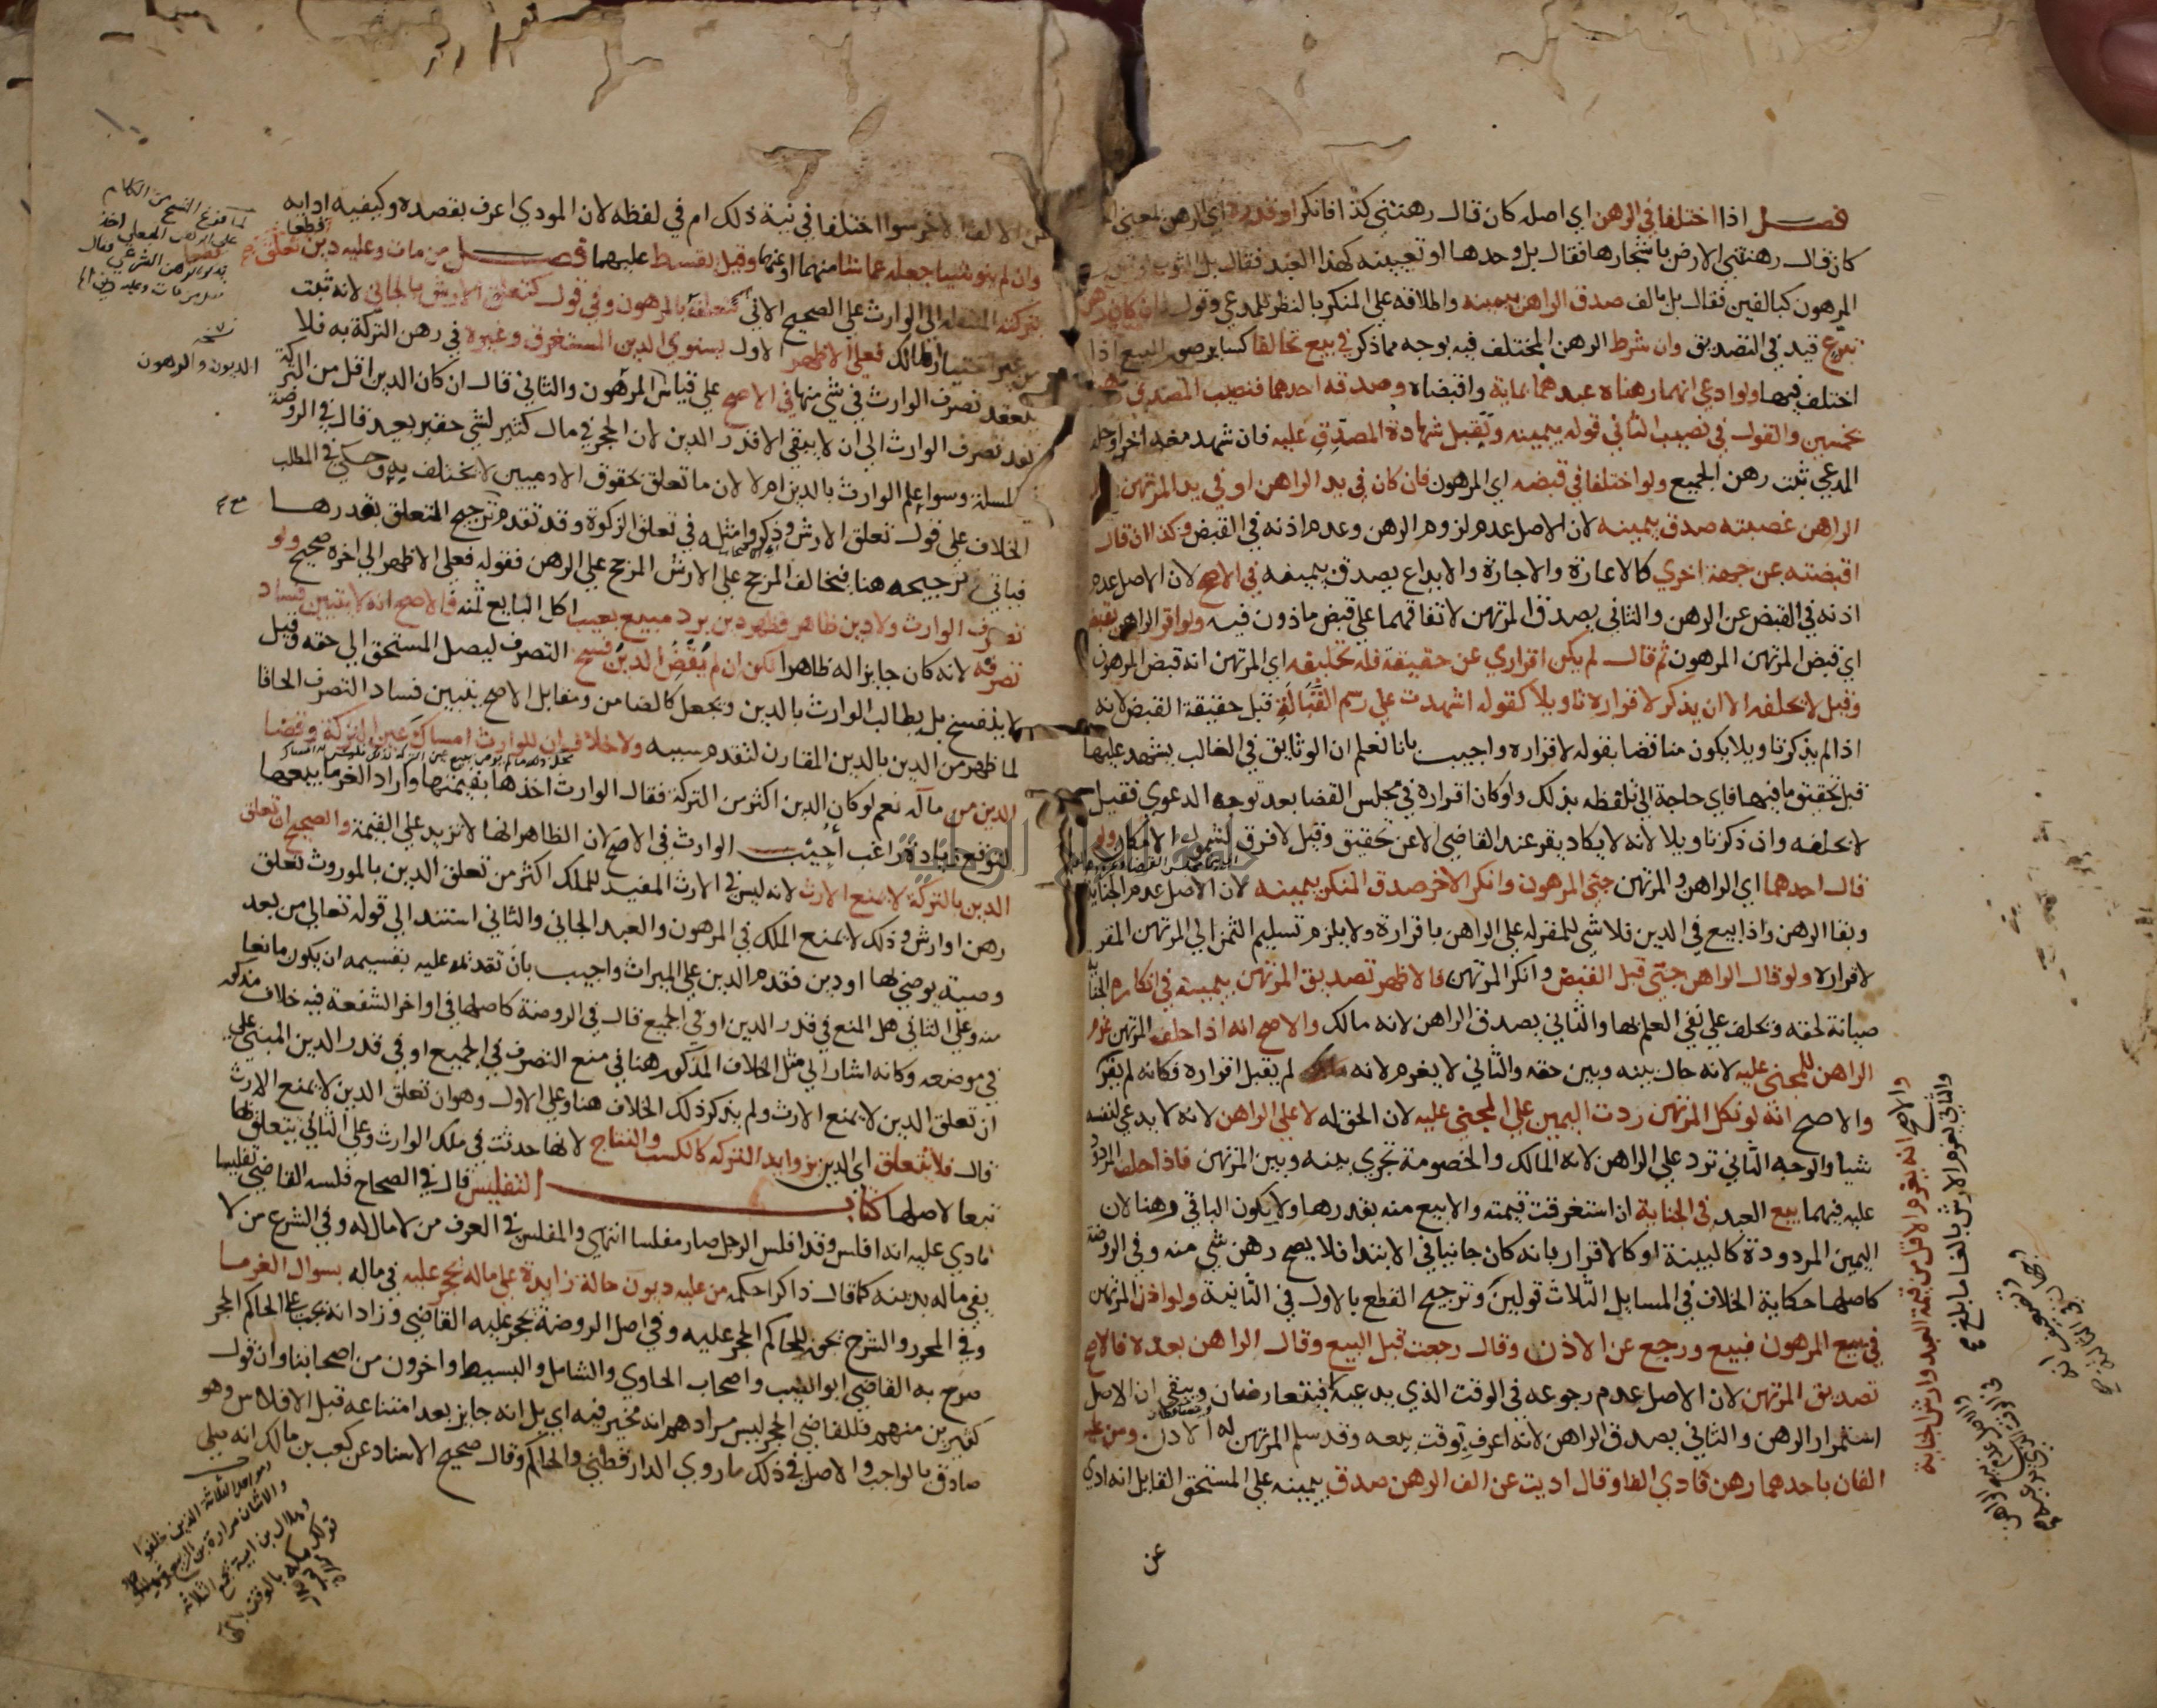 فصل اذا اختلفا في الرهن اي اصله كان قال رهنتني كذا فانكر او قدره اي الرهن بمعني
كان قال رهنتني الارض باشجارها فقال بل وحدها او تعيينه كهذا العبد فقال بل الثوب
المرهون كبالفين فقال بل بالف صدق الراهن بيمينه واطلاقه علي المنكر بالنظر للمدعي وقوله ان كان رهن
تبرع قيد في التصديق وان شرط الرهن المختلف فيه بوجه مما ذكر في بيع تحالفا كساير صور البيع اذا
اختلف فيها ولو ادعي انهما رهناه عبدهما بماية واقبضاه وصدقه احدهما فنصيب المصدق رهن
بخمسين والقول في نصيب الثاني قوله بيمينه وتقبل شهادة المصدق عليه فان شهد معه اخر او حلف
المدعي ثبت رهن الجميع ولو اختلفا في قبضه اي المرهون فان كان في يد الراهن او في يد المرتهن
الراهن غصبته صدق بيمينه لان الاصل عدم لزوم الرهن وعدم اذنه في القبض وكذا ان قال
اقبضته عن جهة اخري كالاعارة والاجارة والايداع يصدق بيمينه في الاصح لان الاصل عدم
اذنه في القبض عن الرهن والثاني يصدق المرتهن لاتفاقهما علي قبض ماذون فيه ولو اقر الراهن بقبضه
اي قبض المرتهن المرهون ثم قال لم يكن اقراري عن حقيقة فله تحليفه اي المرتهن انه قبض المرهون
وقيل لا يحلفه الا ان يذكر لاقراره تاويلا كقوله اشهدت علي رسم القبالة قبل حقيقة القبض لانه
اذا لم يذكر تاويلا يكون مناقضا بقوله لاقراره واجيب بانا نعلم ان الوثايق في الغالب يشهد عليها
قبل تحقيق ما فيها فاي حاجة الي تلفظه بذلك ولو كان اقراره في مجلس القضا بعد توجه الدعوي فقيل
لا يحلفه وان ذكر تاويلا لانه لا يكاد يقر عند القاضي الا عن تحقيق وقيل لا فرق لشمول الامكان ولو
قال احدهما اي الراهن والمرتهن جني المرهون وانكر الاخر صدق المنكر بيمينه لان الاصل عدم الجناية
وبقا الرهن واذا بيع في الدين فلا شي للمقر له علي الراهن باقراره ولا يلزم تسليم الثمن الي المرتهن المقر
لاقراره ولو قال الراهن جني قبل القبض وانكر المرتهن فالاظهر تصديق المرتهن بيمينه في انكاره الجناية
صيانة لحقه ويحلف علي نفي العلم بها والثاني يصدق الراهن لانه مالك والاصح انه اذا حلف المرتهن غرم
الراهن للمجني عليه لانه حال بينه وبين حقه والثاني لا يغرم لانه لم يقبل اقراره فكانه لم يقر
والاصح انه لو نكل المرتهن ردت اليمين علي المجني عليه لان الحق له لا علي الراهن لانه لا يدعي لنفسه
شيا والوجه الثاني ترد علي الراهن لانه المالك والخصومة تجري بينه وبين المرتهن فاذا حلف المردود
عليه فيهما بيع العبد في الجناية ان استغرقت قيمته والا بيع منه بقدرها ولا يكون الباقي رهنا لان
اليمين المردودة كالبينة او كالاقرار بانه كان جانيا في الابتدا فلا يصح رهن شي منه وفي الروضة
كاصلها حكاية الخلاف في المسايل الثلاث قولين وترجيح القطع بالاول في الثانية ولو اذن المرتهن
في بيع المرهون فبيع ورجع عن الاذن وقال رجعت قبل البيع وقال الراهن بعده فالاصح
تصديق المرتهن لان الاصل عدم رجوعه في الوقت الذي يدعيه فيتعارضان ويبقي ان الاصل
استمرار الرهن والثاني يصدق الراهن لانه اعرف بوقت بيعه وقد سلم المرتهن له الاذن ومن عليه
الفان باحدهما رهن فادي الفا وقال اديت عن الف الرهن صدق بيمينه علي المستحق القايل انه ادي
عن
والاصح انه يغرم الاقل من قيمة العبد وارش الجناية
والثاني يغرم الارش بالغا ما بلغ
عن الالف الاخر سوا اختلفا في نية ذلك ام في لفظه لان المودي اعرف بقصده وكيفية ادايه
وان لم ينو شيا جعله عما شا منهما او عنهما وقيل يقسط عليهما فصل من مات وعليه دين تعلق
بتركته المنتقلة الي الوارث علي الصحيح الاتي كتعلقه بالمرهون وفي قول كتعلق الارش بالجاني لانه ثبت
من غير اختيار المالك فعلي الاظهر الاول يستوي الدين المستغرق وغيره في رهن التركة به فلا
ينفذ تصرف الوارث في شي منها في الاصح علي قياس المرهون والثاني قال ان كان الدين اقل من التركة
نفذ تصرف الوارث الي ان لا يبقي الا قدر الدين لان الحجر في مال كثير لشي حقير بعيد قال في الروضة
كالمسلة وسوا علم الوارث بالدين ام لا لان ما تعلق بحقوق الادميين لا يختلف به وحكي في المطلب
الخلاف علي قول تعلق الارش وذكروا مثله في تعلق الزكوة وقد تقدم ترجيح المتعلق بقدرها
فياتي ترجيحه هنا فيخالف المرجح علي الارش المرجح علي الرهن فقوله فعلي الاظهر الي اخره صحيح ولو
تصرف الوارث ولا دين ظاهر فظهر دين برد مبيع بعيب اكل البايع ثمنه فالاصح انه لا يتبين فساد
تصرفه لانه كان جايزا له ظاهرا لكن ان لم يقض الدين فسخ التصرف ليصل المستحق الي حقه وقيل
لا ينفسخ بل يطالب الوارث بالدين ويجعل كالضامن ومقابل الاصح يتبين فساد التصرف الحاقا
لما ظهر من الدين بالدين المقارن لتقدم سببه ولا خلاف ان للوارث امساك عين التركة وقضا
الدين من ماله نعم لو كان الدين اكثر من التركة فقال الوارث اخذها بقيمتها واراد الغرما بيعها
لتوقع زيادة راغب اجيب الوارث في الاصح لان الظاهر انها لا تزيد علي القيمة والصحيح ان تعلق
الدين بالتركة لا يمنع الارث لانه ليس في الارث المفيد للملك اكثر من تعلق الدين بالموروث تعلق
رهن او ارش وذلك لا يمنع الملك في المرهون والعبد الجاني والثاني استند الي قوله تعالي من بعد
وصية يوصي بها او دين فقدم الدين علي الميراث واجيب بان تقديمه عليه بقسيمه ان يكون مانعا
منه وعلي الثاني هل المنع في قدر الدين او في الجميع قال في الروضة كاصلها في اواخر الشفعة فيه خلاف مذكور
في موضعه وكانه اشار الي مثل الخلاف المذكور هنا في منع التصرف في الجميع او في قدر الدين المبني علي
ان تعلق الدين لا يمنع الارث ولم يذكر ذلك الخلاف هنا وعلي الاول وهو ان تعلق الدين لا يمنع الارث
قال فلا يتعلق اي الدين بزوايد التركة كالكسب والنتاج لانها حدثت في ملك الوارث وعلي الثاني يتعلق بها
تبعا لاصلها كتاب التفليس قال في الصحاح فلسه القاضي تفليسا
نادي عليه انه افلس وقد افلس الرجل صار مفلسا انتهي والمفلس في العرف من لا مال له وفي الشرع من لا
يفي ماله بدينه كما قال ذاكرا حكمه من عليه ديون حالة زايدة علي ماله يحجر عليه في ماله بسوال الغرما
وفي المحرر والشرح يحق للحاكم الحجر عليه وفي اصل الروضة يحجر عليه القاضي وزاد انه يجب علي الحاكم الحجر
صرح به القاضي ابو الطيب واصحاب الحاوي والشامل والبسيط واخرون من اصحابنا وان قول
كثيرين منهم فللقاضي الحجر ليس مرادهم انه مخير فيه اي بل انه جايز بعد امتناعه قبل الافلاس وهو
صادق بالواجب والاصل في ذلك ما روي الدارقطني والحاكم وقال صحيح الاسناد عن كعب بن مالك انه صلي
نسخة
الديون والرهون